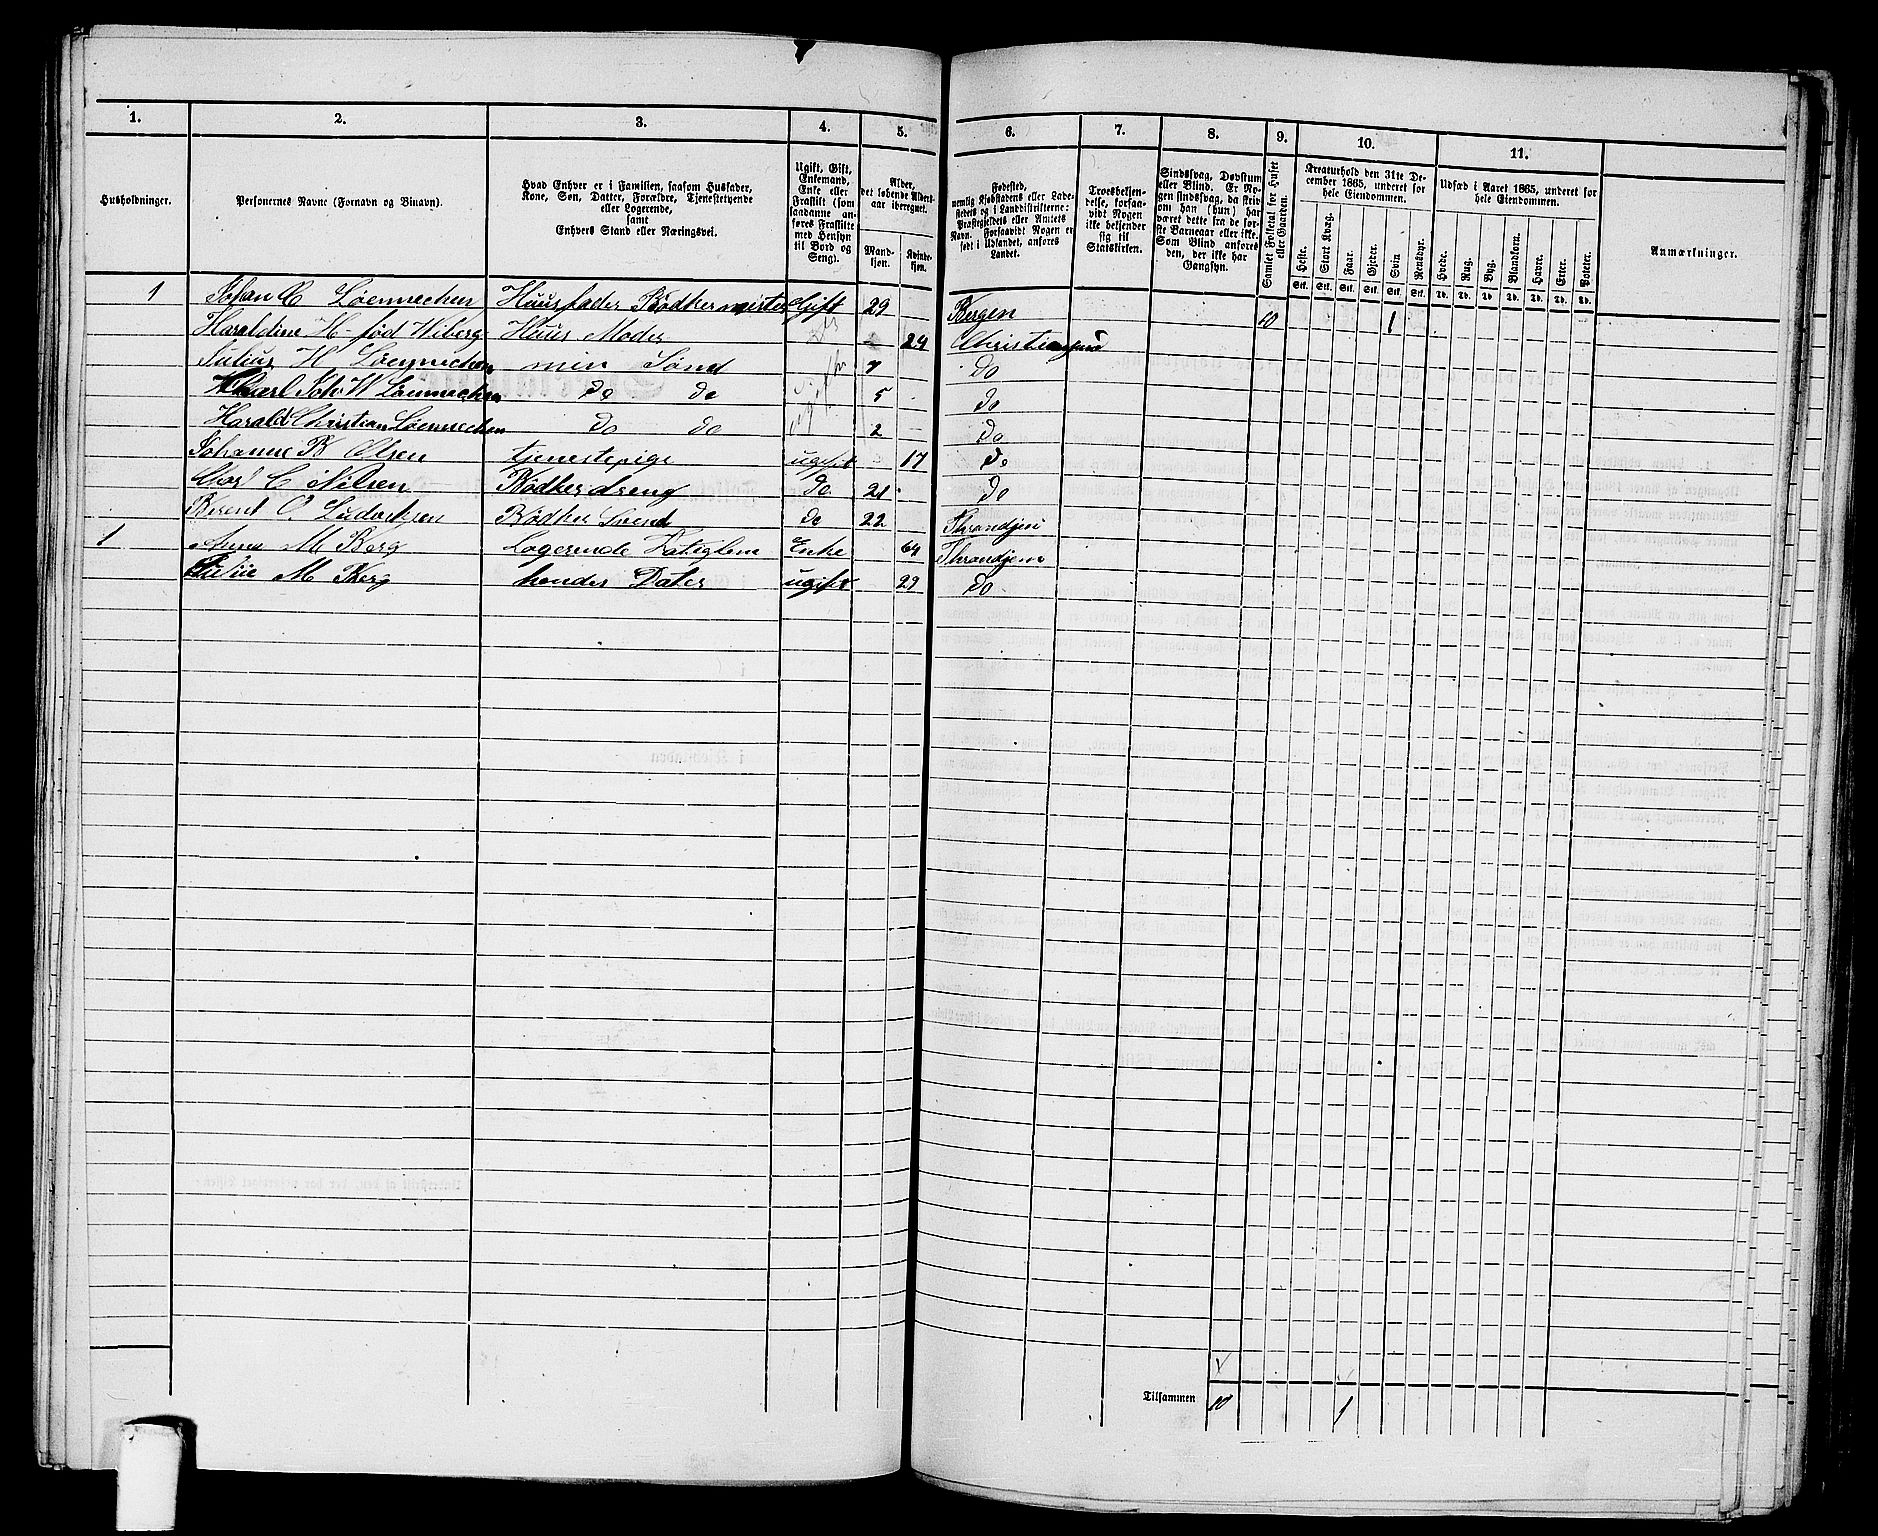 1. 2. 3. 4. 5. 6. 7. 8. 9. 10. 11.
Husholdninger.
Personernes Navne (Fornavn og Binavn).
Hvad Enhver er i Familien, saasom Husfader,
Kone, Søn, Datter, Forældre, Tjenestetyende
eller Logerende,
samt
Enhvers Stand eller Næringsvei.
Ugift, Gift,
Enkemand,
Enke eller
Fraskilt (som
saadanne an-
føres Fraskilte
med Hensyn
til Bord og
Seng).
Alder,
det løbende Alders-
aar iberegnet.
Mand-
kjøn.
Kvinde-
kjøn.
Fødested,
nemlig Kjøbstadens eller Lade-
stedets og i Landdistrikterne:
Præstegjeldets eller Amtets
Navn. Forsaavidt Nogen er
født i Udlandet, anføres
Landet.
Troesbekjen-
delse, forsaa-
vidt Nogen
ikke bekjender
sig til
Statskirken.
Sindssvag, Døvstum
eller Blind. Er No-
gen sindssvag, da skriv
om han (hun) har
været dette fra de før-
ste Barneaar eller ikke.
Som Blind anføres
den, der ikke har
Gangsyn.
Samlet Folketal for Huset
eller Gaarden.
Kreaturhold den 31te De-
cember 1865, underet for
hele Eiendommen.
Heste. Stort Kvæg. Faar. Gjeder. Svin Rensdyr.
Stk. Stk. Stk. Stk. Stk. Stk.
Udsæd i Aaret 1865, underet for
hele Eiendommen.
Hvede. Rug. Byg. Blandkorn. Havre. Erter. Poteter.
Td. Td. Td. Td. Td. Td. Td.
Anmærkninger.
1 Johan C Loennechen Huusfader Bödkermester Gift 29 Bergen 10 1
Haraldine H født Wiberg Huus Moder 24 Christiansund
Julius H Loennechen min Sönd 7 Do
Joh W Loennechen do do 5 do
Harald Christian Loennechen do do 2 do
Johanne B Olsen tjenestepige ugift 17 do
C Nilsen Bödker dreng do 21 do
Berent O Ludvigsen Bödker Svend do 22 Throndjem
1 Anna M Berg Logerende Enke 64 Throndjem
Julie M Berg hendes Dater ugift 29 do
Tilsammen 10 1